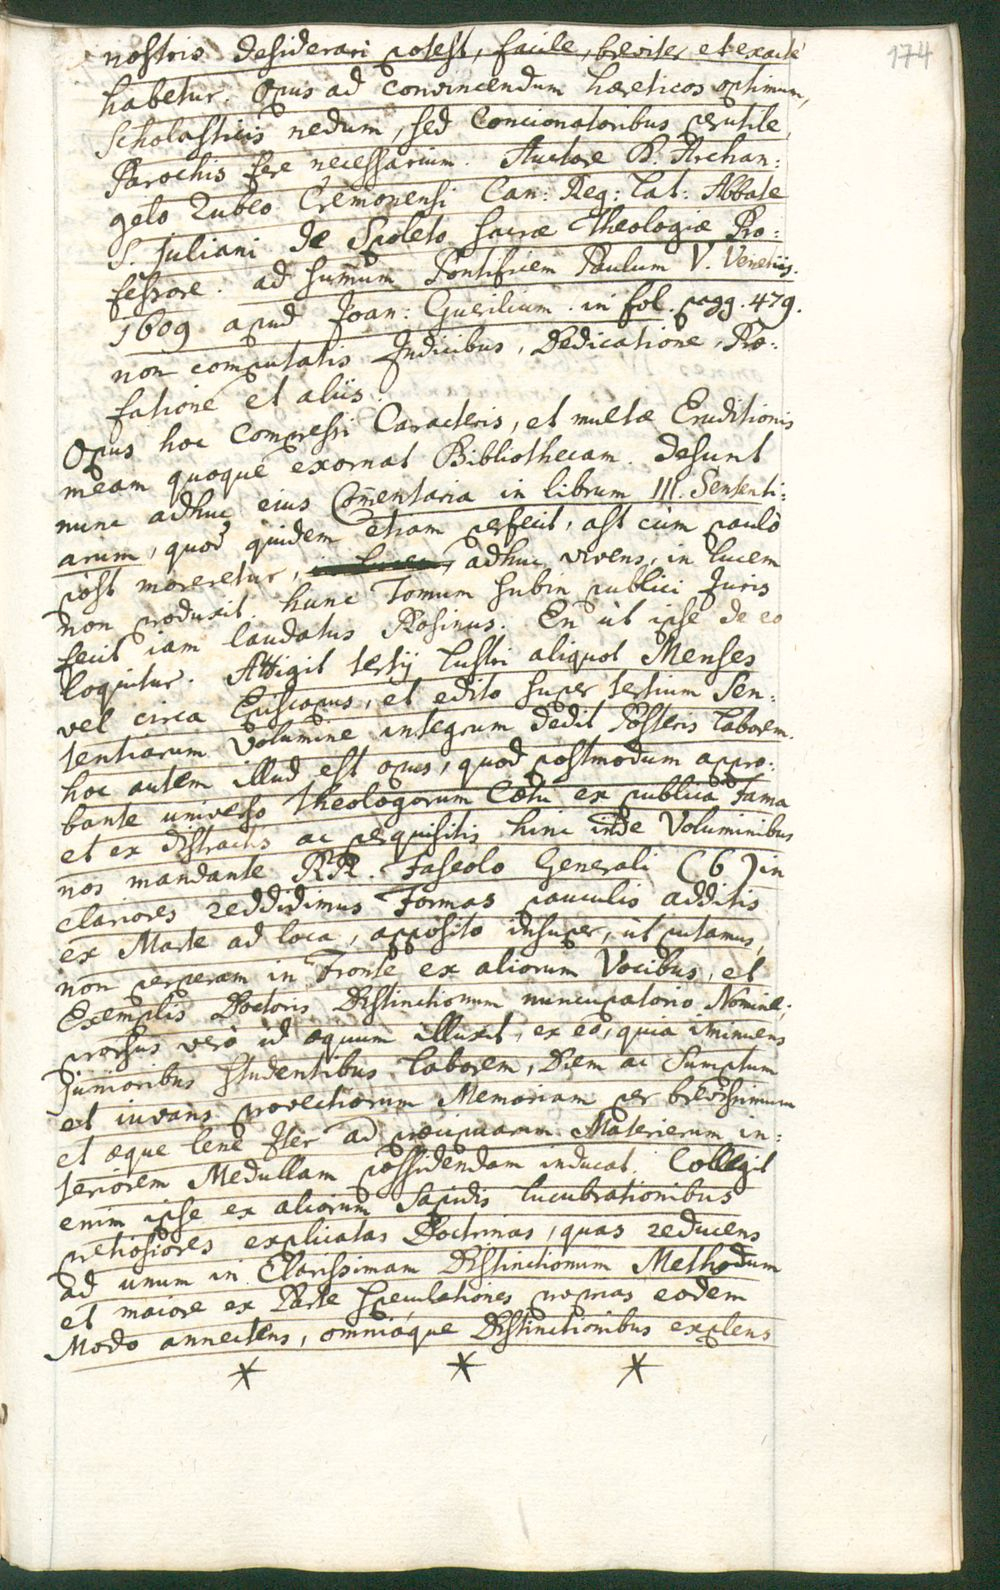 174
nostris desiderari potest, facile, breviter et exacte
habetur. Opus ad convincendum hæreticos optimum,
Scholasticis nedum, sed Concionatoribus perutile,
Parochis fere necessarium. Auctore P. Archan:
gelo Rubeo Cremonensi Can: Reg: Lat: Abbate
S. Juliani de Spoleto sacræ Theologiæ Pro:
fessore. ad summum Pontificem Paulum V. Venetiis.
1609 apud Joan: Guerilium. in fol. pagg. 479.
non computatis Indicibus, Dedicatione, Præ:
fatione et aliis.
Opus hoc Compressi Caracteris, et multæ Eruditionis
meam quoque exornat Bibliothecam. Desunt
nunc adhuc eius Comentaria in librum III. Sententi:
arum, quod quidem etiam perfecit, ast cum paulò
post moreretur, adhuc vivens, in lucem
non produxit. hunc Tomum subin publici Juris
fecit iam laudatus Rosinus. En ut ipse de eo
loquitur. Attigit tertij lustri aliquot Menses
vel circa Episcopus, et edito super tertium Sen:
tentiarum Volumine integrum dedit Posteris laborem.
hoc autem illud est opus, quod postmodum appro:
bante universo Theologorum Cœtu ex publica Fama
et ex distractis ac perquisitis hinc inde Voluminibus
nos mandante RR. Faseolo Generali (6) in
clariores reddidimus Formas pauculis additis
ex Marte ad loca, apposito insuper, ut putamus,
non perperam in Fronte ex aliorum Vocibus, et
Exemplis Doctoris Distinctionum nuncupatorio Nomine;
prorsus verò id æquum illuxit, ex eo, quia iminuens
Junioribus studentibus laborem, Diem ac Sumptum
et iuvans provectiorum Memoriam per brevissimum
et æque lene Iter ad præcipuarum Materierum in:
teriorem Medullam possidendam inducat. Collegit
enim ipse ex aliorum sapidis lucubrationibus
pretiosiores explicatas Doctrinas, quas reducens
ad unum in Clarissimam Distinctionum Methodum
et maiore ex Parte speculationes proprias eodem
Modo annectens, omniáque Distinctionibus explens
* * *